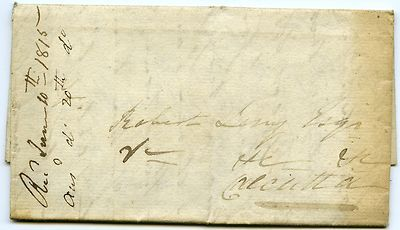 Rec.d June 10th 1815
ans.d do 20th do
Robert Esqr
&c &c &c
Calcutta